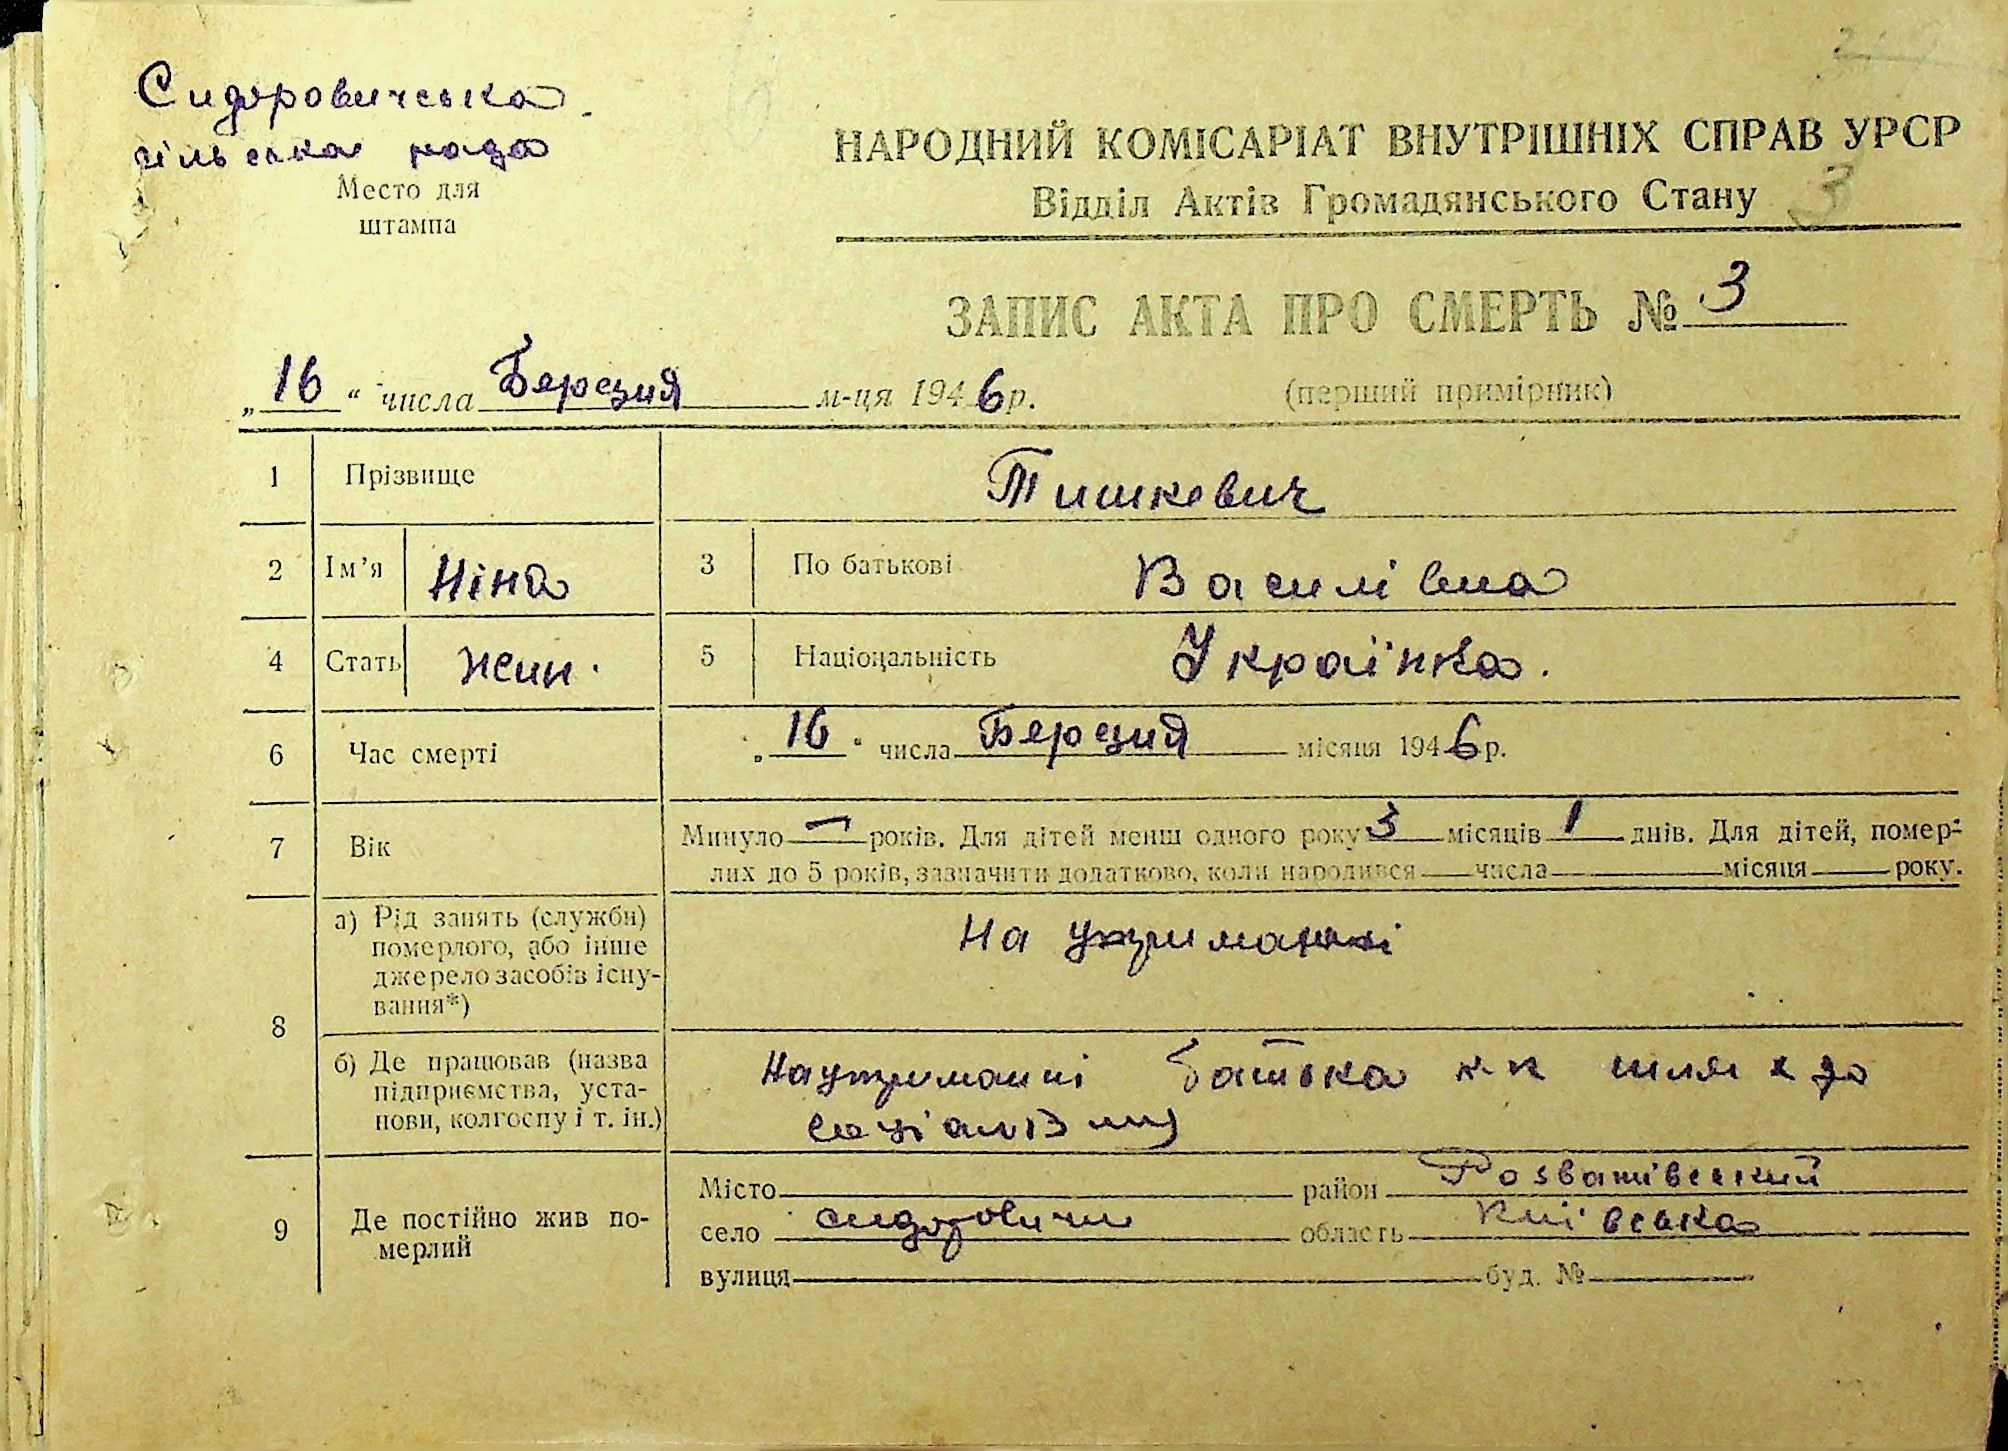 Сидоровичська
сільська рада
Место для
штампа
НАРОДНИЙ КОМІСАРІАТ ВНУТРІШНІХ СПРАВ УРСР
Відділ Актів Громадянського Стану 3
ЗАПИС АКТА ПРО СМЕРТЬ № 3
„16“ числа Березня м-ця 1946 р. (перший примірник)
1 Прізвище Тишкевич
2 Ім’я Ніна 3 По батькові Василівна
4 Стать жин. 5 Національність Українка.
6 Час смерті „16“ числа Березня місяця 1946 р.
7 Вік Минуло — років. Для дітей менш одного року 3 місяців 1 днів. Для дітей, помер-
лих до 5 років, зазначити додатково, коли народився числа місяця року.
8 а) Рід занять (служби)
померлого, або інше
джерело засобів існу-
вання*)
На утриманні
б) Де працював (назва
підприємства, уста-
нови, колгоспу і т. ін.)
На утриманні батька к-п шлях до
соціалізму
9 Де постійно жив по-
мерлий
Місто район Розважівський
село сидоровичи область Київська
вулиця буд. №